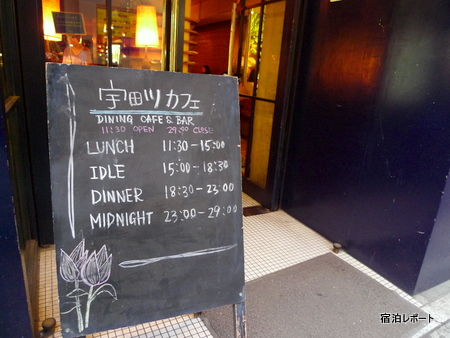 宇田川カフェ
DINING CAFE & BAR
11:30 OPEN 29:00 CLOSE
LUNCH 11:30-15:00
IDLE 15:00-18:30
DINNER 18:30-23:00
MIDNIGHT 23:00-29:00
宿泊レポート